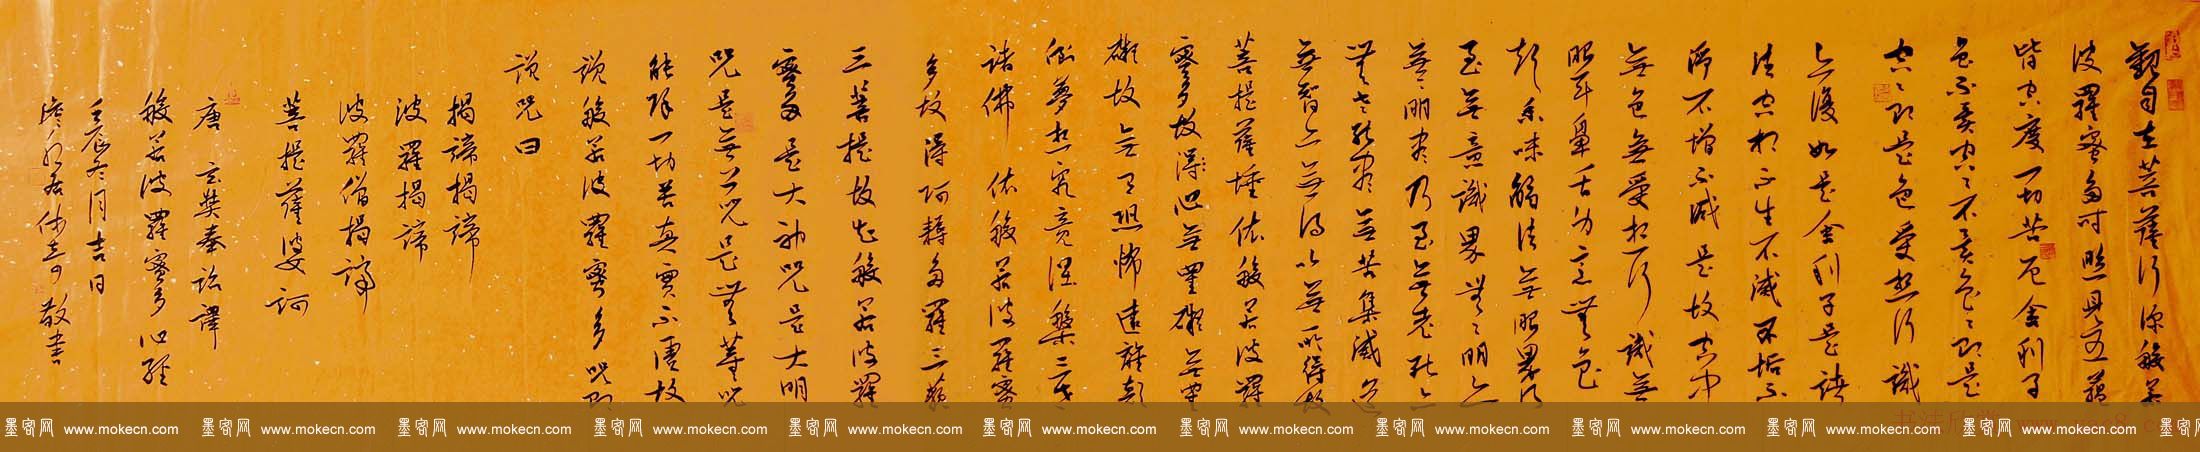 觀自在菩薩行深般若
波羅蜜多時照見五蘊
皆空度一切苦厄舍利子
色不異空空不異色色即是
空空即是色受想行識
亦復如是舍利子是諸
法空相不生不滅不垢不
淨不增不減是故空中
無色無受想行識無
眼耳鼻舌身意無色
聲香味觸法無眼界乃
至無意識界無無明亦
無無明盡乃至無老死亦
無老死盡無苦集滅道
無智亦無得以無所得故
菩提薩埵依般若波羅
蜜多故得心無罣礙無罣
礙故無有恐怖遠離顛
倒夢想究竟涅槃三世
諸佛 依般若波羅蜜
多故得阿耨多羅三藐
三菩提故知般若波羅
蜜多是大神咒是大明
咒是無上咒是無等等咒
能除一切苦真實不虛故
說般若波羅蜜多咒即
說咒曰
揭諦揭諦
波羅揭諦
波羅僧揭諦
菩提薩婆訶
唐 玄奘奉詔譯
般若波羅蜜多心經
壬辰冬月吉日
敬書
墨客网 www.mokecn.com 墨客网 www.mokecn.com 墨客网 www.mokecn.com 墨客网 www.mokecn.com 墨客网 www.mokecn.com 墨客网 www.mokecn.com 墨客网 www.mokecn.com 墨客网 www.mokecn.com 墨客网 www.mokecn.com 墨客网 www.mokecn.com 墨客网 www.mokecn.com 墨客网